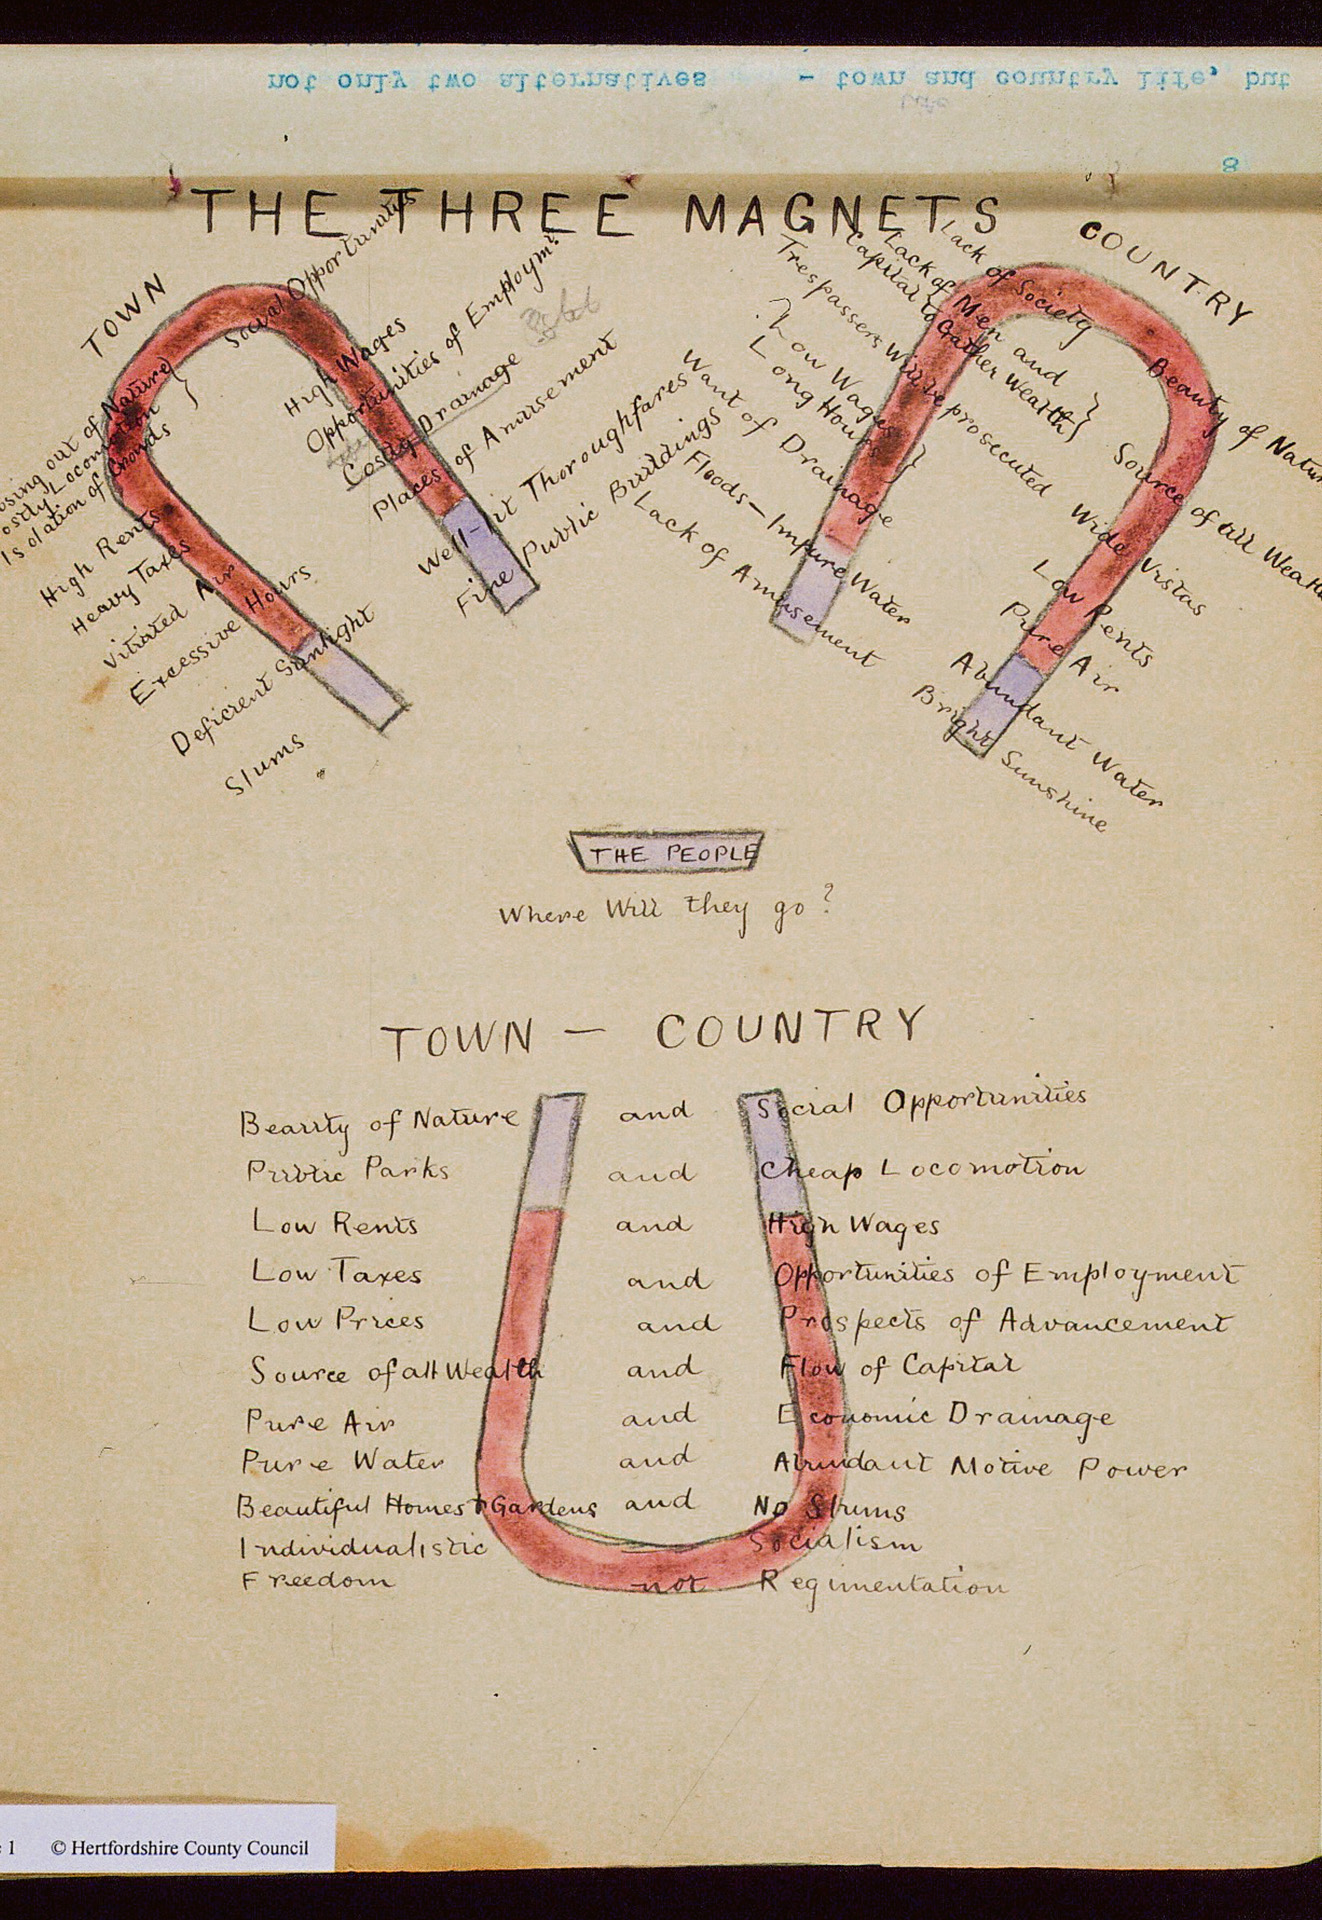 not only two alternatives - town and country life, but
8
THE THREE MAGNETS
TOWN
osing out of Nature
ostly Locomotion
Isolation of Crowds
High Rents
Heavy Taxes
Vitiated Air
Excessive Hours
Deficient Sunlight
Slums
Social Opportunities
High Wages
Opportunities of Employmt
Costly Drainage
Places of Amusement
Well-lit Thoroughfares
Fine Public Buildings
COUNTRY
Lack of Society
Lack of Men and
Capital to Gather Wealth
Trespassers Will be prosecuted
Low Wages
Long Hours
Want of Drainage
Floods - Impure Water
Lack of Amusement
Beauty of Natur
Source of all Wealt
Wide Vistas
Low Rents
Pure Air
Abundant Water
Bright Sunshine
THE PEOPLE
Where Will they go?
TOWN - COUNTRY
Beauty of Nature and Social Opportunities
Public Parks and Cheap Locomotion
Low Rents and High Wages
Low Taxes and Opportunities of Employment
Low Prices and Prospects of Advancement
Source of all Wealth and Flow of Capital
Pure Air and Economic Drainage
Pure Water and Abundant Motive Power
Beautiful Homes & Gardens and No Slums
Individualistic — Socialism
Freedom not Regimentation
1 © Hertfordshire County Council